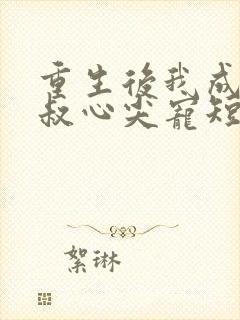 重生後我成
叔心尖寵短
絮琳